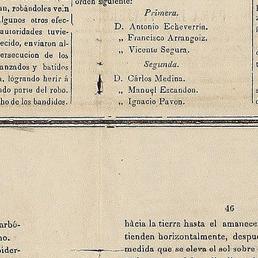 ran, robándoles ven
lgunos otros efec-
autoridades tuvie-
ecido, enviaron al-
persecucion de los
anzados y batidos
, logrando herir á
do parte del robo.
ho de los bandidos.
orden siguiente:
Primera.
D. Antonio Echeverria.
„ Francisco Arrangoiz.
„ Vicente Segura.
Segunda.
D. Cárlos Medina.
„ Manuel Escandon.
„ Ignacio Pavon.
arbó-
no.
oider-
46
hácia la tierra hasta el amanece
tienden horizontalmente, despue
medida que se eleva el sol sobre